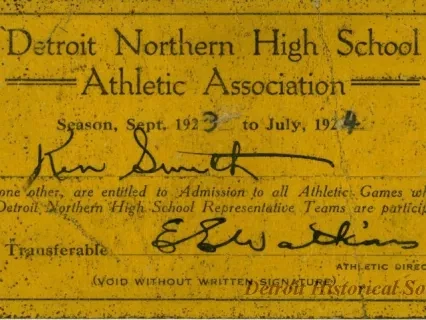 Detroit Northern High School
Athletic Association
Season, Sept. 1923 to July, 1924
Ken Smith
one other, are entitled to Admission to all Athletic Games wh
Detroit Northern High School Representative Teams are particip
Transferable E E Watkins
ATHLETIC DIREC
(VOID WITHOUT WRITTEN SIGNATURE)
Detroit Historical So